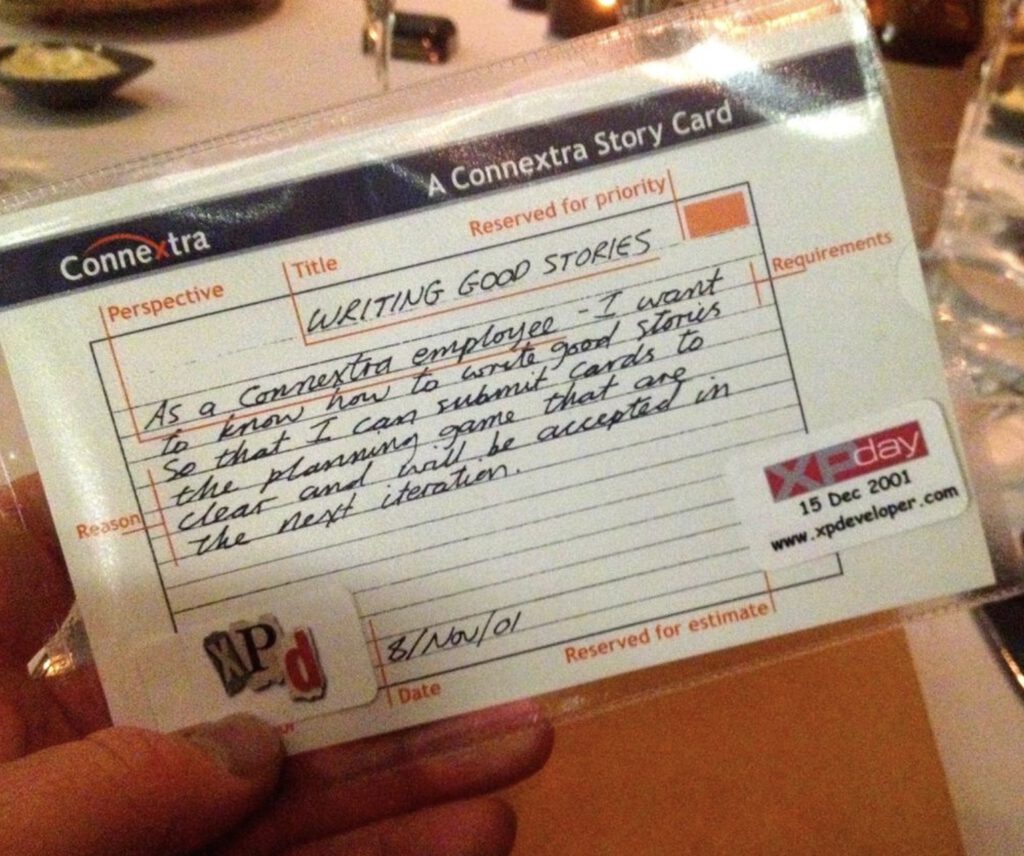 A Connextra Story Card
Connextra
Reserved for priority
Title
Perspective
WRITING GOOD STORIES
Requirements
As a Connextra employee - I want
to know how to write good stories
so that I can submit cards to
the planning game that are
clear and will be accepted in
the next iteration.
Reason
XPday
15 Dec 2001
www.xpdeveloper.com
XPd
8/Nov/01
Reserved for estimate
Date